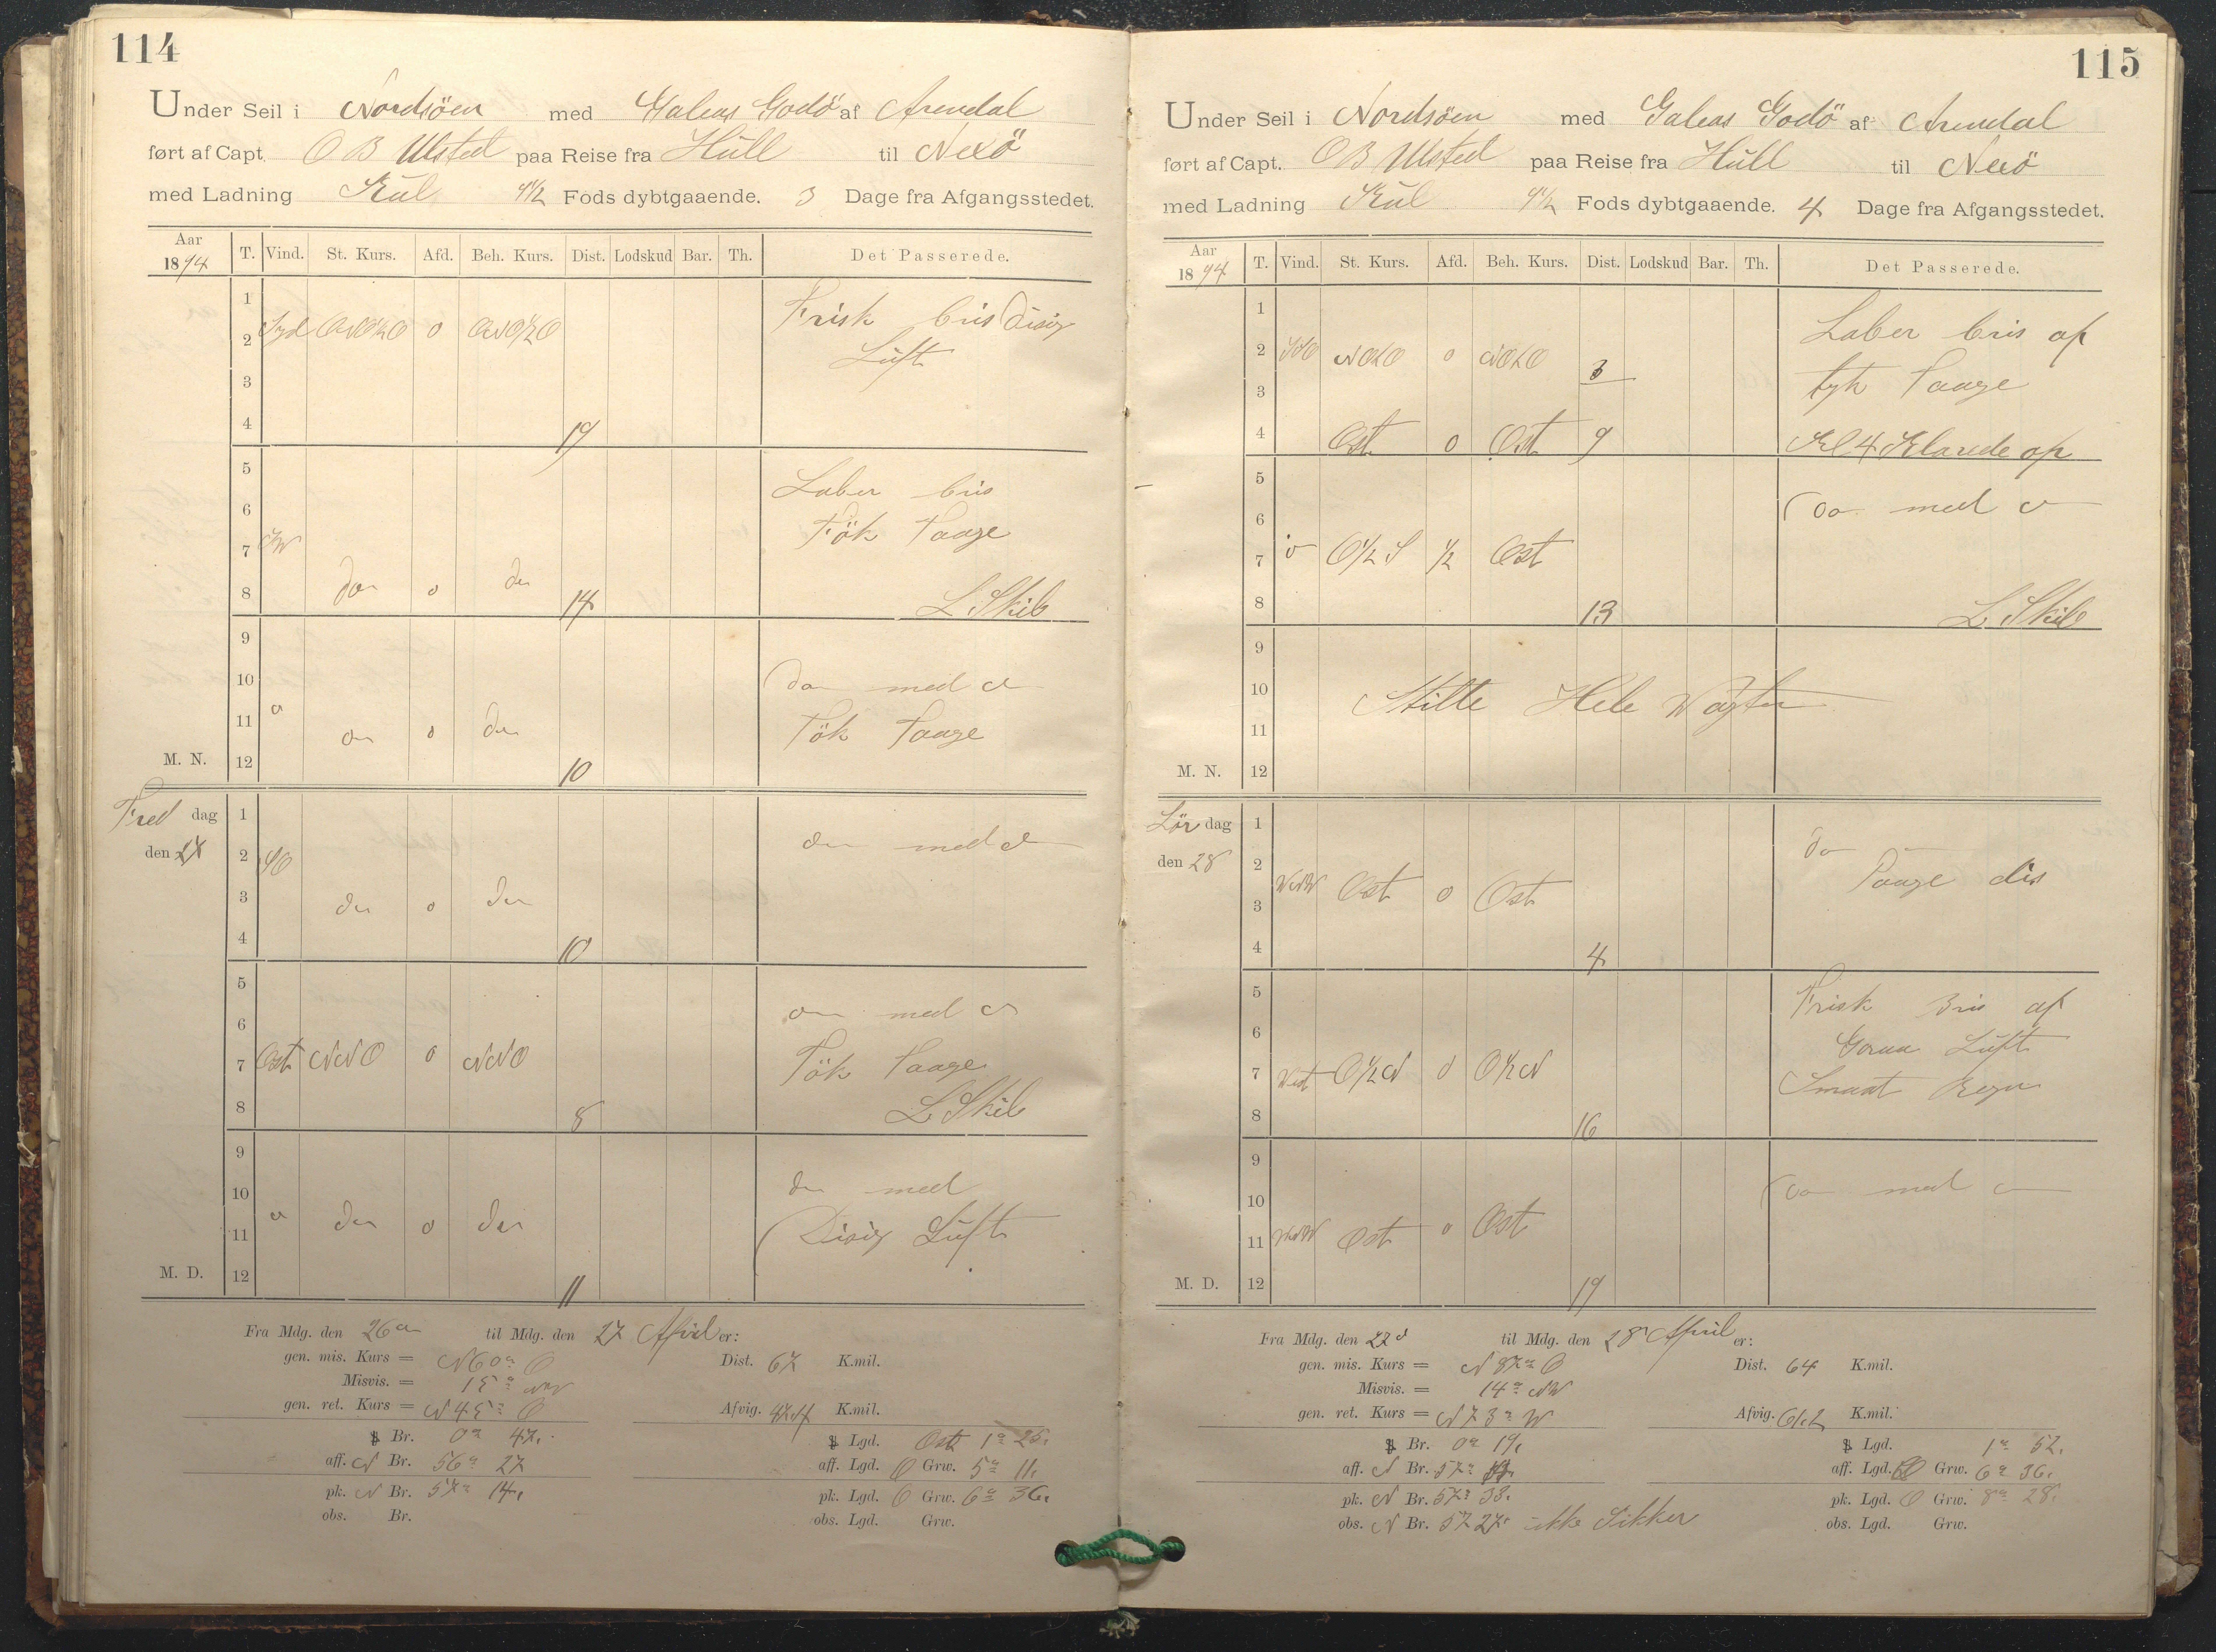 114
Under Seil i Nordsöen med Galeas Godö af Arendal
ført af Capt. O B Ulsted paa Reise fra Hull til Nexö
med Ladning Kul 9½ Fods dybtgaaende. 3 Dage fra Afgangsstedet.
Aar 1894 T. Vind. St. Kurs. Afd. Beh. Kurs. Dist. Lodskud Bar. Th. Det Passerede.
1
2 Syd ONO½O 0 ONO½O Frisk bris disig
3 Luft
4 19
5 Laber bris
6 Tök Taage
7 SW
8 do 0 do 14 L Skib
9
10 do med do
11 do 0 do Tök Taage
M. N. 12 10
Fredag 1
den 27 2 SO do med do
3 do 0 do
4 10
5
6 do med do
7 Ost NNO 0 NNO Tök Taage
8 8 L Skib
9
10 do med
11 do 0 do Disig Luft
M. D. 12 11
Fra Mdg. den 26 til Mdg. den 27 April er:
gen. mis. Kurs = N 60° O Dist. 67 K.mil.
Misvis. = 15° NW
gen. ret. Kurs = N 45° O Afvig. 47.4 K.mil.
Br. 0° 47. Lgd. Ost 1° 25.
aff. N Br. 56° 27 aff. Lgd. O Grw. 5° 11.
pk. N Br. 57° 14. pk. Lgd. O Grw. 6° 36.
obs. Br. obs. Lgd. Grw.
115
Under Seil i Nordsöen med Galeas Godö af Arendal
ført af Capt. O B Ulsted paa Reise fra Hull til Nexö
med Ladning Kul 9½ Fods dybtgaaende. 4 Dage fra Afgangsstedet.
Aar 1894 T. Vind. St. Kurs. Afd. Beh. Kurs. Dist. Lodskud Bar. Th. Det Passerede.
1 Laber bris af
2 NOtO 0 NOtO 3
3 tyk Taage
4 Ost 0 Ost 9 Kl 4 Klarede op
5
6 do med do
7 O½S ½ Ost
8 13 L Skib
9
10 Stille Hele Vagten
11
M. N. 12
Lördag 1 do
den 28 2 Taage dis
3 WNW Ost 0 Ost
4 4
5 Frisk Bris af
6 Graa Luft
7 West O½N 0 O½N Smaat Regn
8 16
9
10 do med do
11 WNW Ost 0 Ost
M. D. 12 19
Fra Mdg. den 27 til Mdg. den 28 April er:
gen. mis. Kurs = N 87° O Dist. 64 K.mil.
Misvis. = 14° NW
gen. ret. Kurs = N 73° W Afvig. 61.2 K.mil.
Br. 0° 19. Lgd. 1° 52.
aff. N Br. 57° 14. aff. Lgd. O Grw. 6° 36.
pk. N Br. 57° 33. pk. Lgd. O Grw. 8° 28.
obs. N Br. 57 27. ikke Sikker obs. Lgd. Grw.